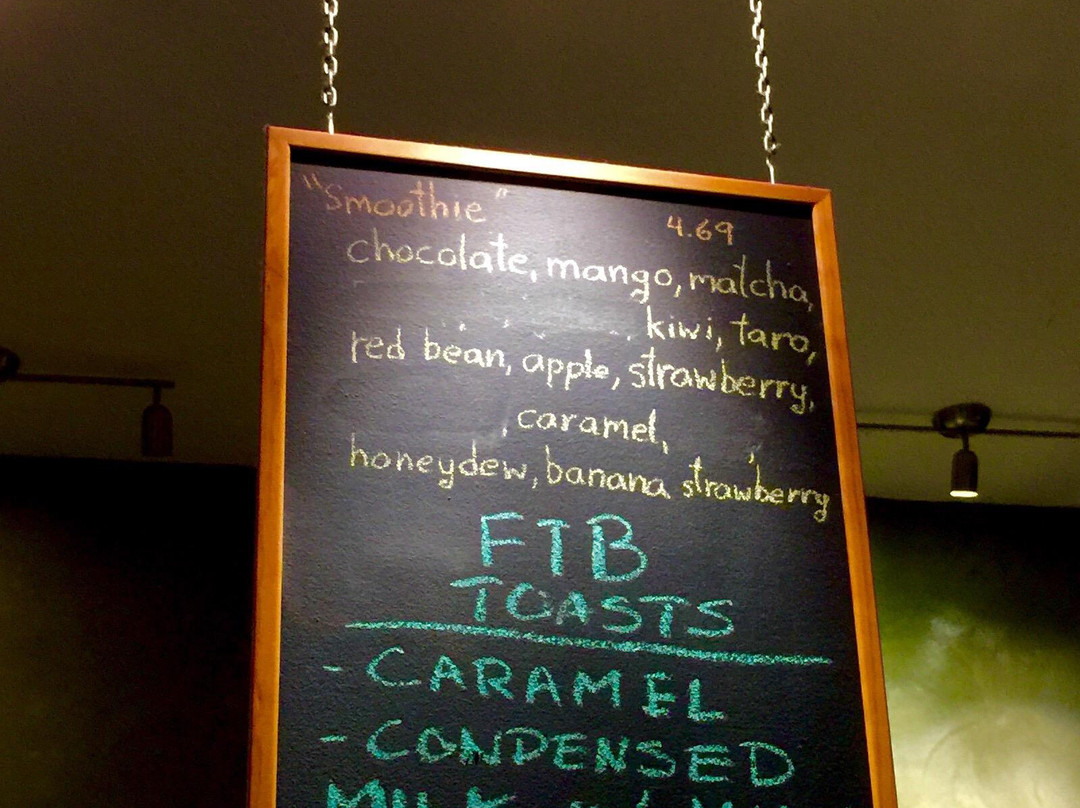 "Smoothie" 4.69
chocolate, mango, matcha,
kiwi, taro,
red bean, apple, strawberry,
, caramel,
honeydew, banana strawberry
FTB
TOASTS
- CARAMEL
- CONDENSED
MILK